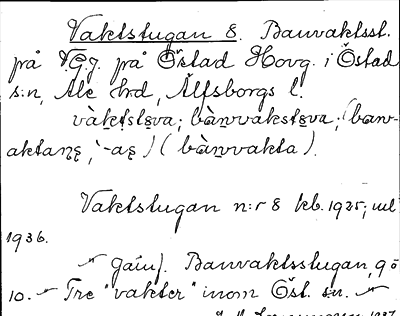 Vaktstugan 8. Banvaktsst.
på V.G.g. på Östad Hovg. i Östad
s:n, Ale hrd, Älfsborgs l.
vàktstꬶva; bànvakstꬶva; (banv-
aktanę, -aę) (bànvakta).
Vaktstugan n:r 8 kb. 1925; uel
1936.
–"– gäuf. Banvaktsstugan, 9 o
10. –"– Tre "vakter" inom Öst. sn. –"–